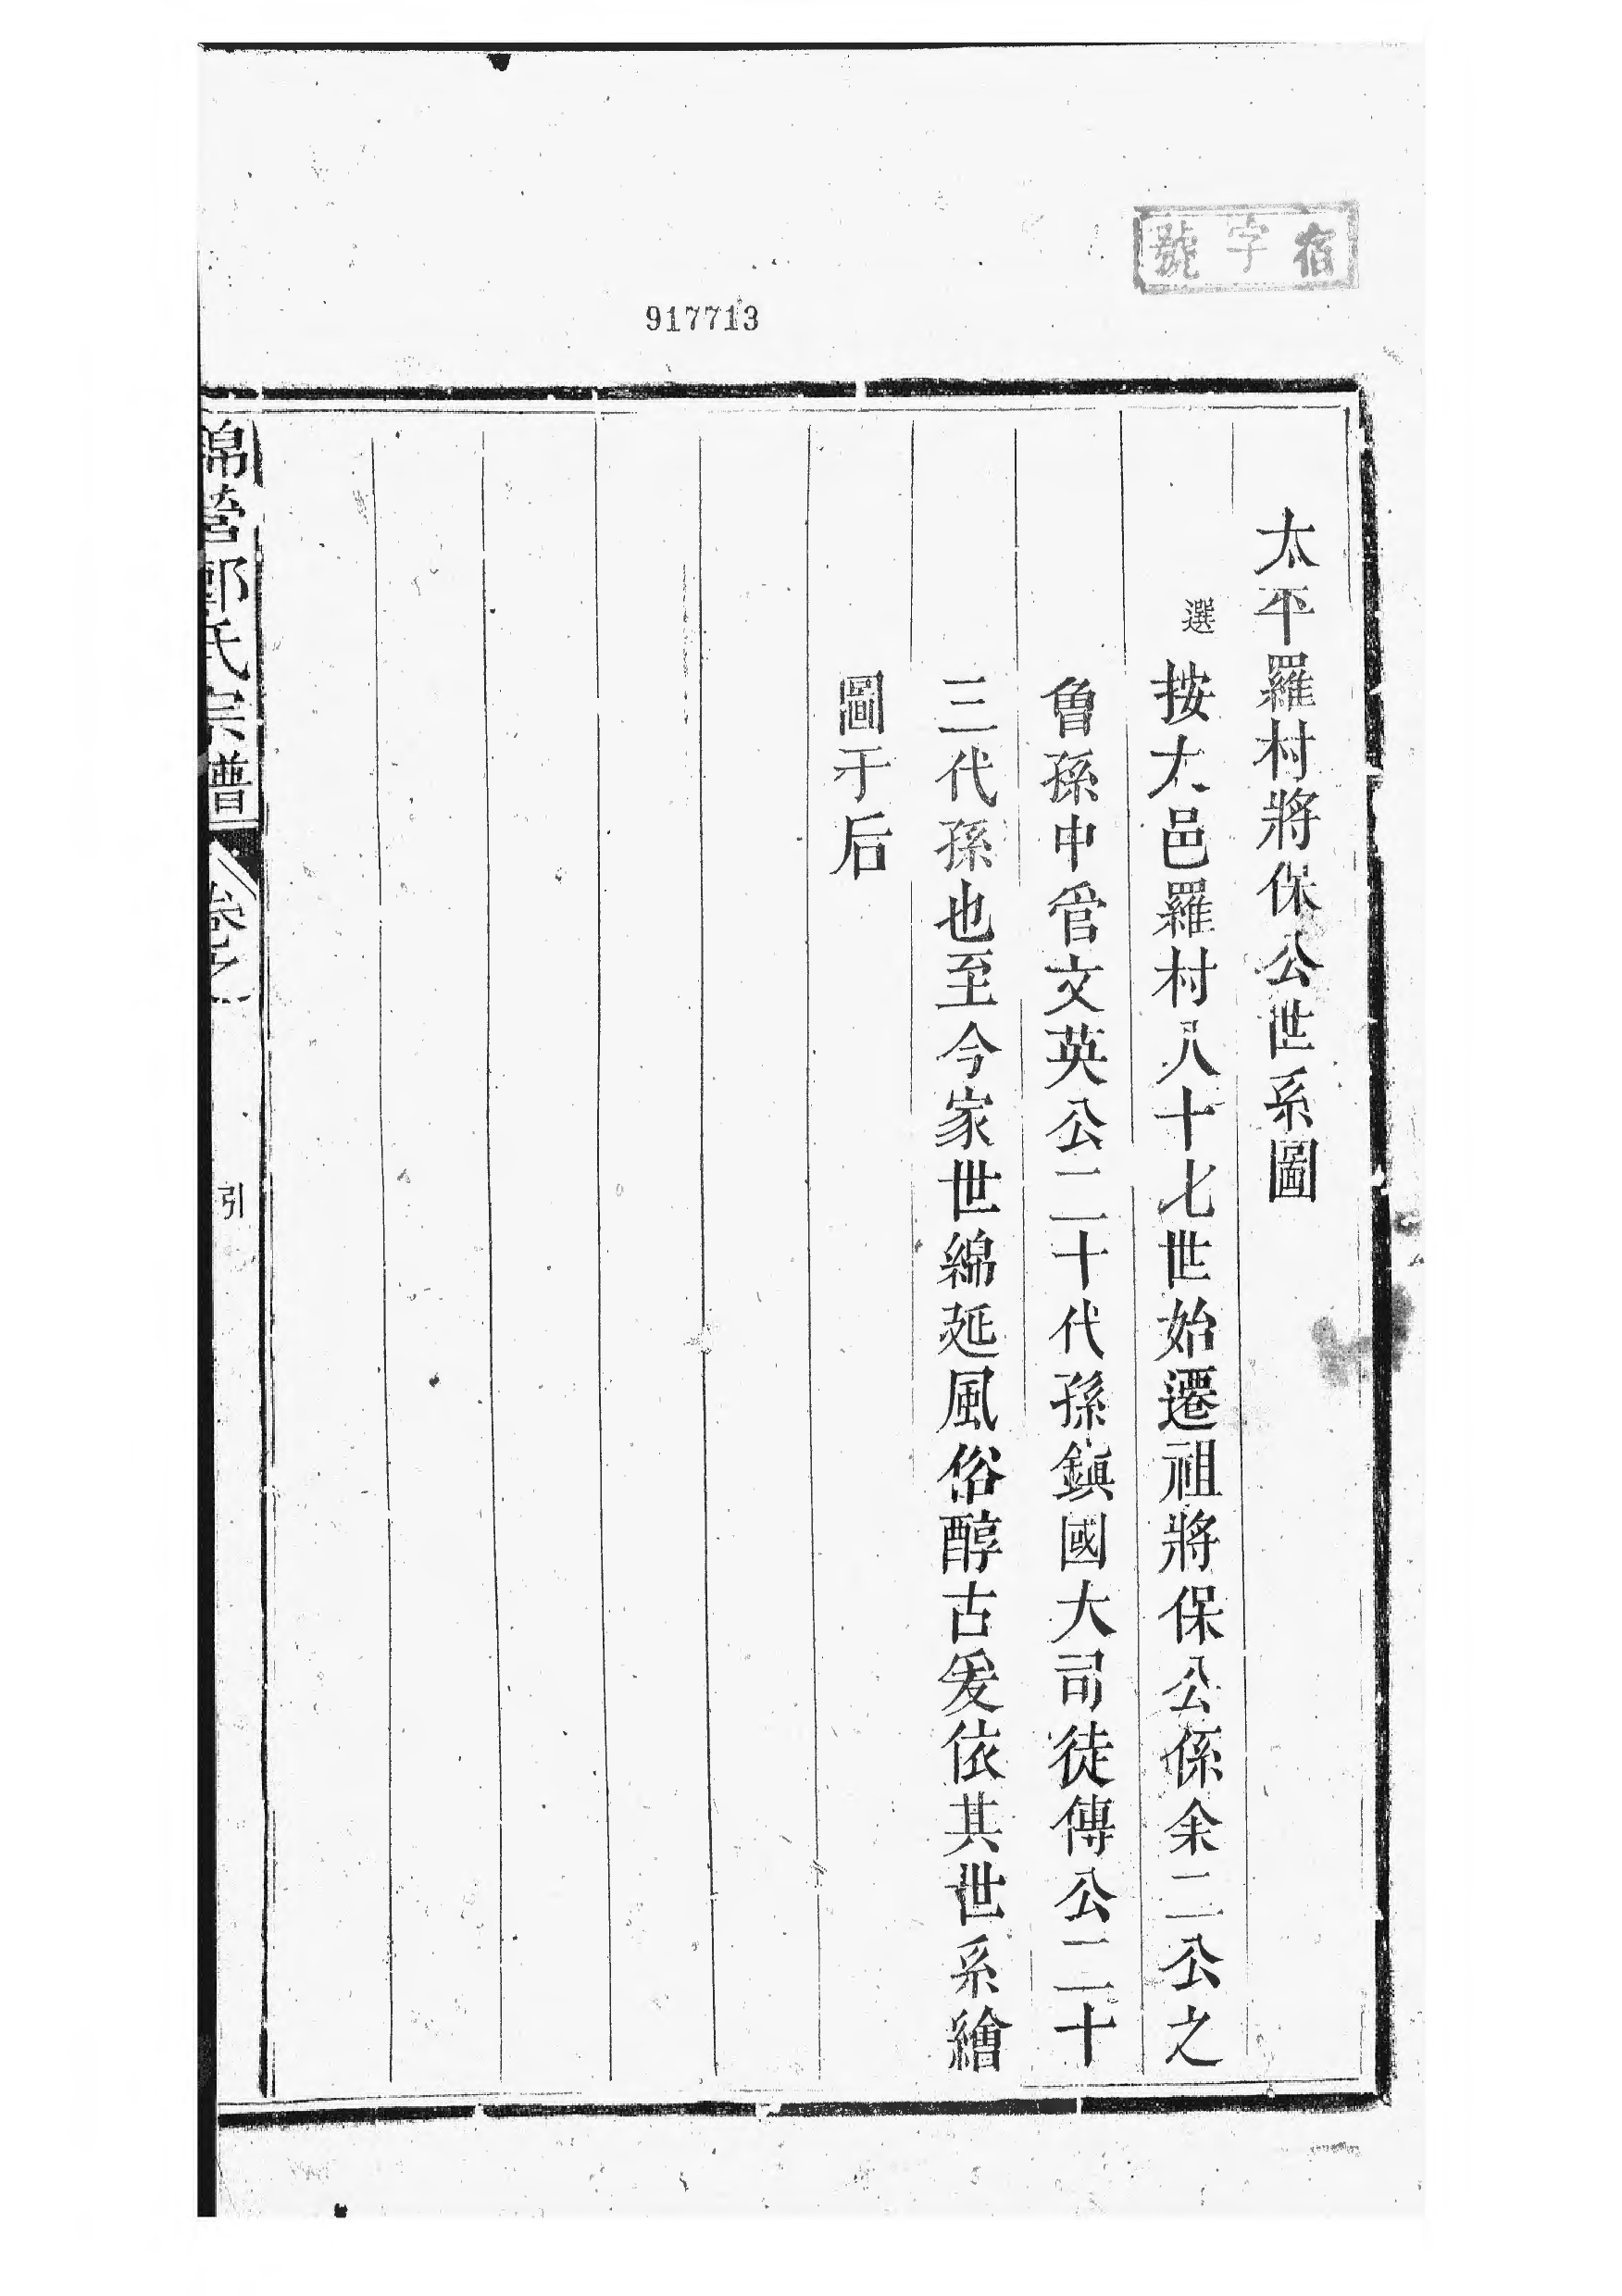 宿字號
917713
太平羅村將保公世系圖
選
按太邑羅村八十七世始遷祖將保公係余二公之
魯孫中管文英公二十代孫鎮國大司徒傳公二十
三代孫也至今家世綿延風俗醇古爰依其世系繪
圖于后
錦營鄭氏宗譜
卷之
引